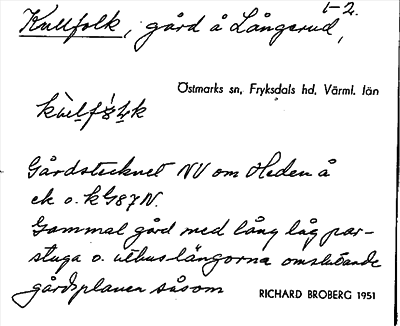 1-2.
Kullfolk, gård å Långerud,
Östmarks sn, Fryksdals hd, Värml. län
Gårdstecknet NV om Heden å
ek o. k G87N.
Gammal gård med lång låg par-
stuga o. uthuslängorna omslutande
gårdsplanen såsom
RICHARD BROBERG 1951